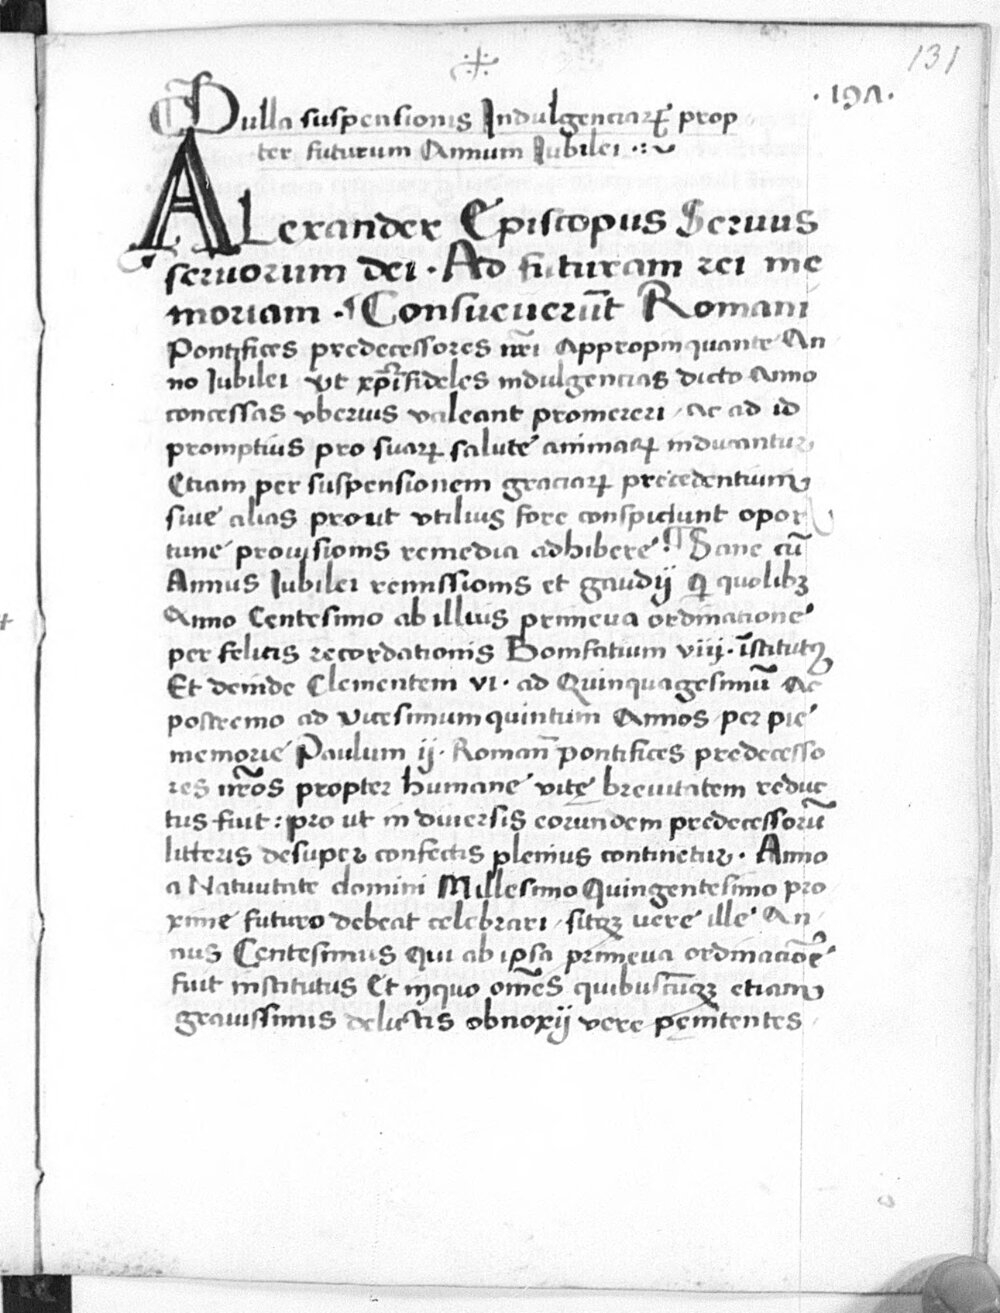 131
·197·
Bulla suspensionis Indulgenciaꝝ prop
ter futurum Annum Iubilei
ALexander Episcopus Seruus
seruorum dei · Ad futuram rei me
moriam · ¶ Consueuerūt Romani
Pontifices predecessores nr̄i Appropinquante An
no Iubilei vt xp̄ifideles indulgencias dicto Anno
concessas vberius valeant promereri / ac ad id
promptius pro suaꝝ salute animaꝝ inducantur
Etiam per suspensionem graciaꝝ precedentium
siue alias prout vtilius fore conspiciunt opor
tune prouisionis remedia adhibere · ¶ Sane cū
Annus Iubilei remissionis et gaudij q̄ quolibꝫ
Anno Centesimo ab illius primeua ordinacione
per felicis recordationis Bonifatium viij · īstitutꝰ
Et deinde Clementem vi · ad Quinquagesimū Ac
postremo ad vicesimumquintum Annos per pie
memorie Paulum ij · Roman̄ pontifices predecesso
res nr̄os propter humane vite breuitatem reduc
tus fuit : pro ut in diuersis eorundem predecessorū
litteris desuper confectis plenius continetur · Anno
a Natiuitate domini Millesimo Quingentesimo pro
xime futuro debeat celebrari / sitqꝫ vere ille An
nus Centesimus Qui ab ipsa primeua ordinacōe
fuit institutus Et inquo om̄es quibuscūqꝫ etiam
grauissimis delictis obnoxij vere penitentes